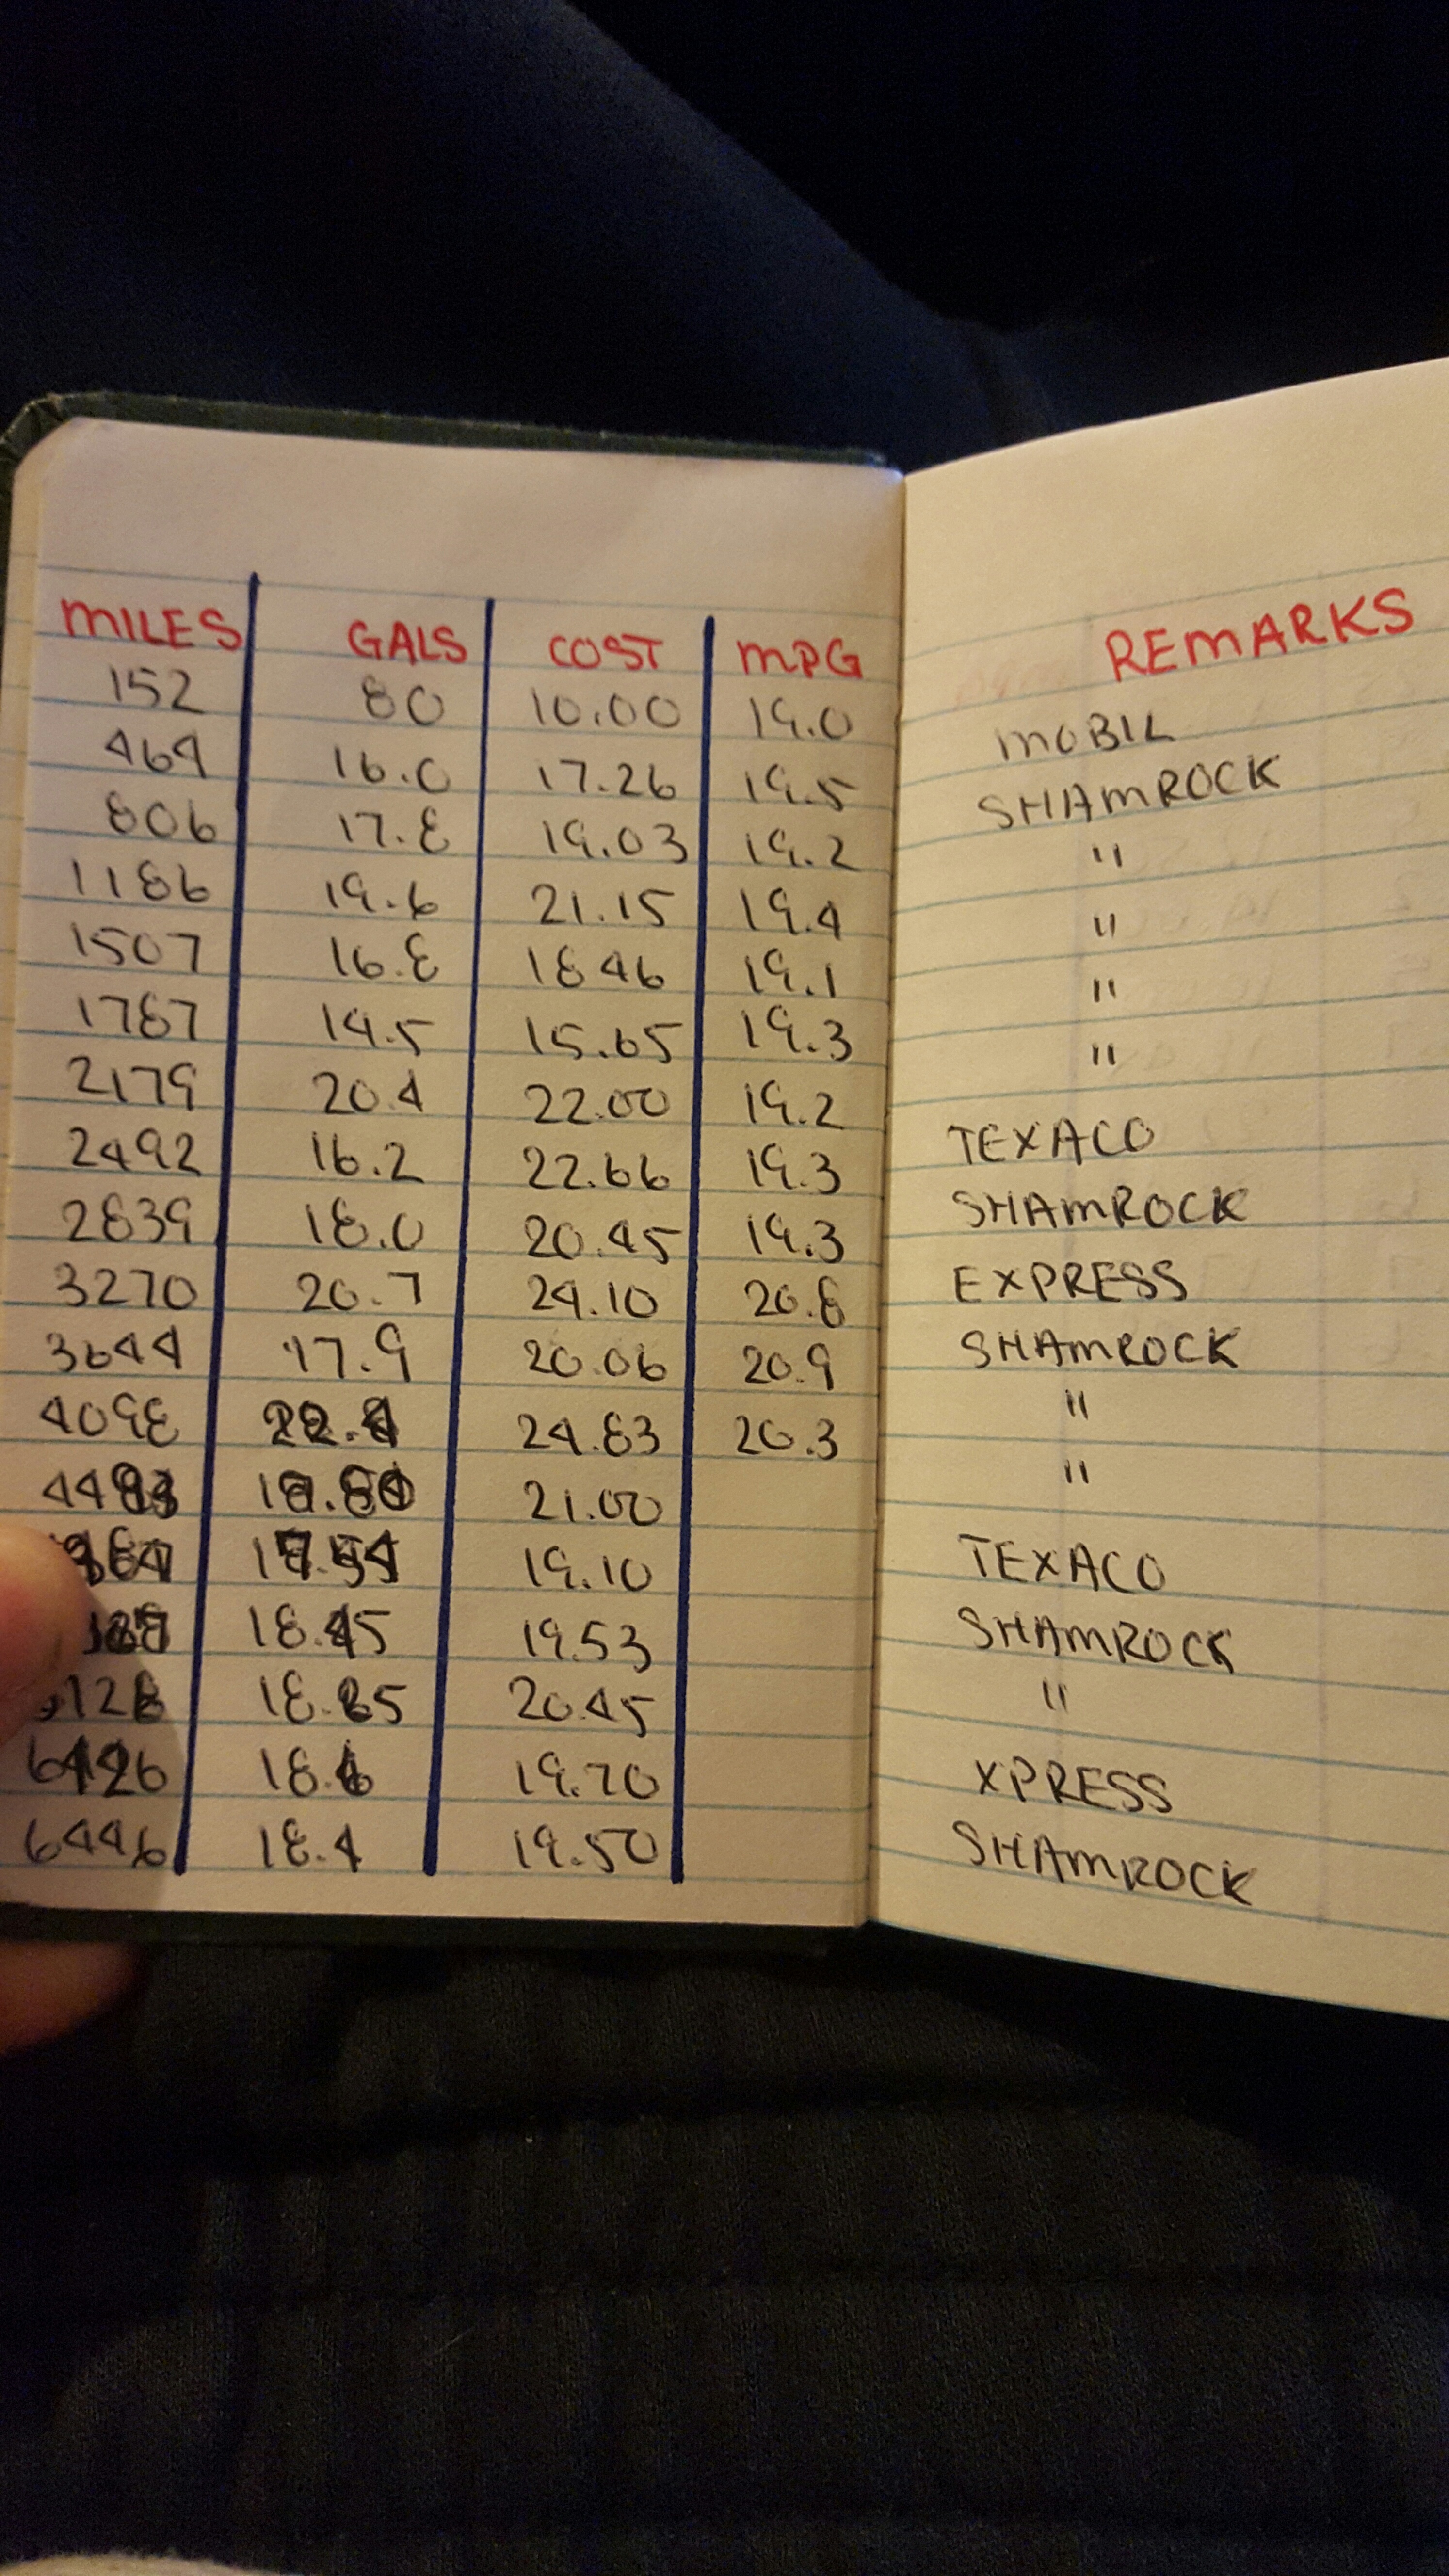 MILES GALS COST MPG REMARKS
152 80 10.00 19.0 MOBIL
464 16.0 17.26 19.5 SHAMROCK
806 17.8 19.03 19.2 "
1186 19.6 21.15 19.4 "
1507 16.8 1846 19.1 "
1787 14.5 15.65 19.3 "
2179 20.4 22.00 19.2 TEXACO
2492 16.2 22.66 19.3 SHAMROCK
2839 18.0 20.45 19.3 EXPRESS
3270 20.7 24.10 20.8 SHAMROCK
3644 17.9 20.06 20.9 "
4098 24.83 20.3 "
21.00 TEXACO
19.10 SHAMROCK
19.53 "
20.45 XPRESS
19.70 SHAMROCK
6446 18.4 19.50